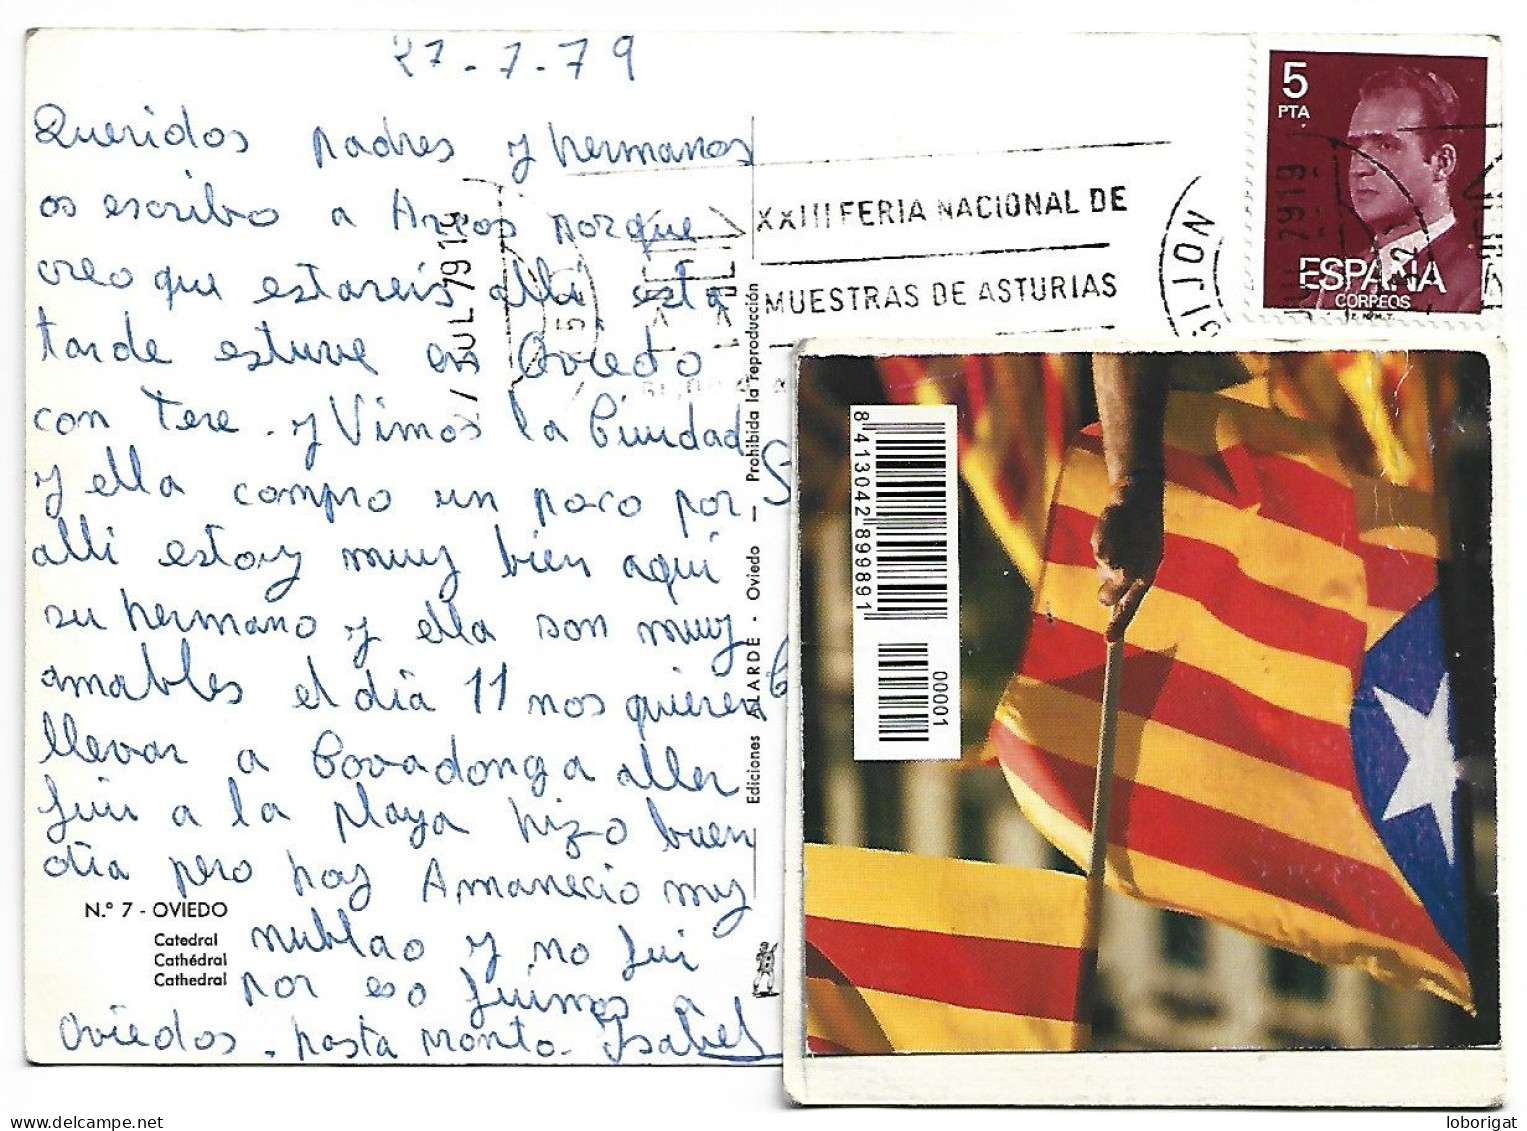 27-7-79
Queridos padres y hermanos
os escribo a Arcos porque
creo que estareis alli esta
tarde estuve en Oviedo
con Tere. y Vimos la Ciudad
y ella compro un poco por
alli estoy muy bien aqui
su hermano y ella son muy
amables el dia 11 nos quieren
llevar a Covadonga aller
fui a la playa hizo buen
dia pero hoy Amanecio muy
nublao y no fui
por eso fuimos a
Oviedos. hasta pronto. Isabel
N.º 7 - OVIEDO
Catedral
Cathédral
Cathedral
Ediciones ALARDE · Oviedo — Prohibida la reproducción
XXIII FERIA NACIONAL DE
MUESTRAS DE ASTURIAS
GIJON
JUL 79 19
5
PTA
ESPAÑA
CORREOS
F.N.M.T.
8 413042 899891
00001
loborigat